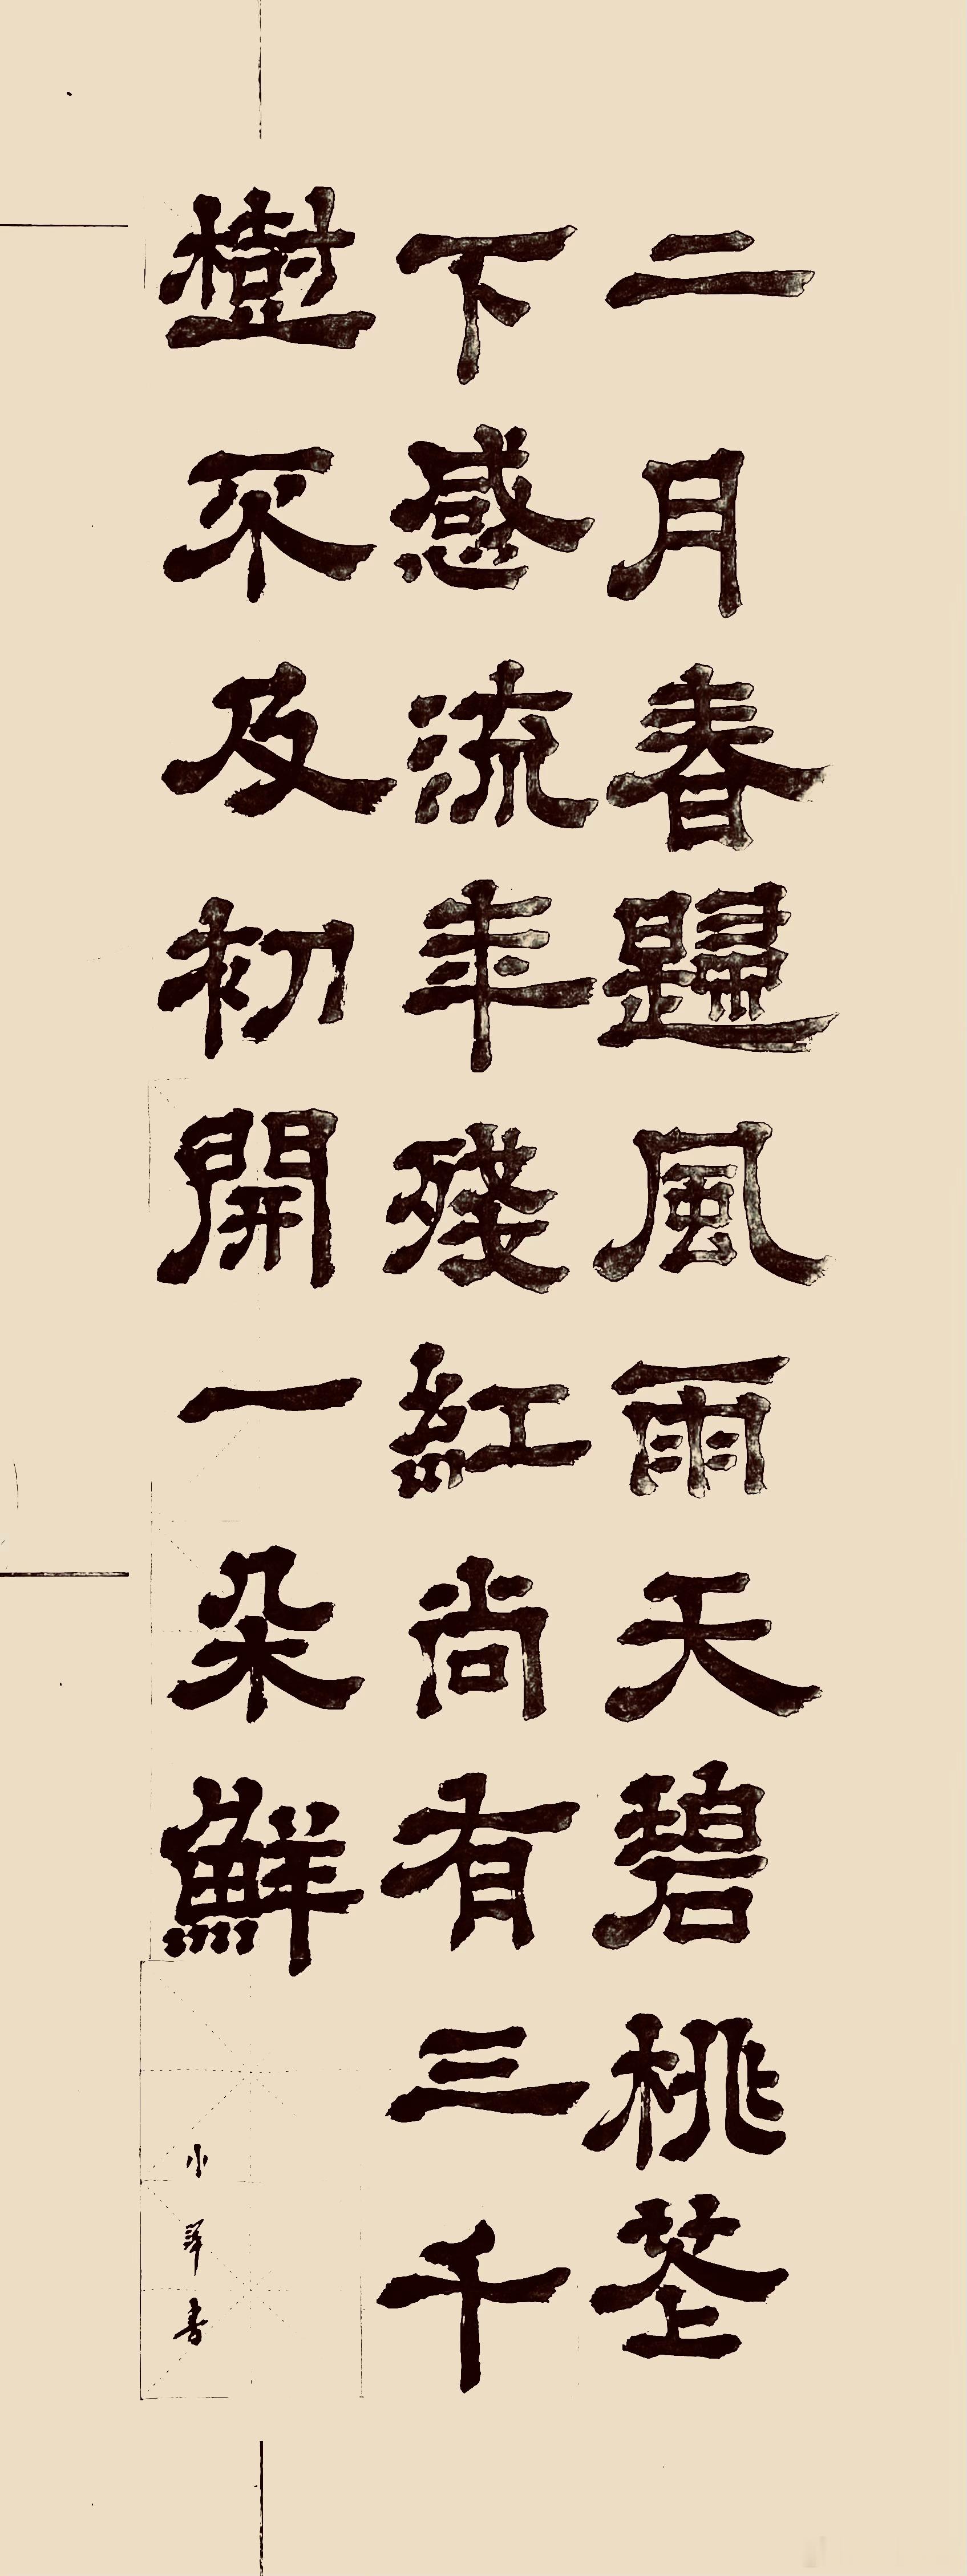 二月春歸風雨天碧桃花
下感流年殘紅尚有三千
樹不及初開一朵鮮
小華書